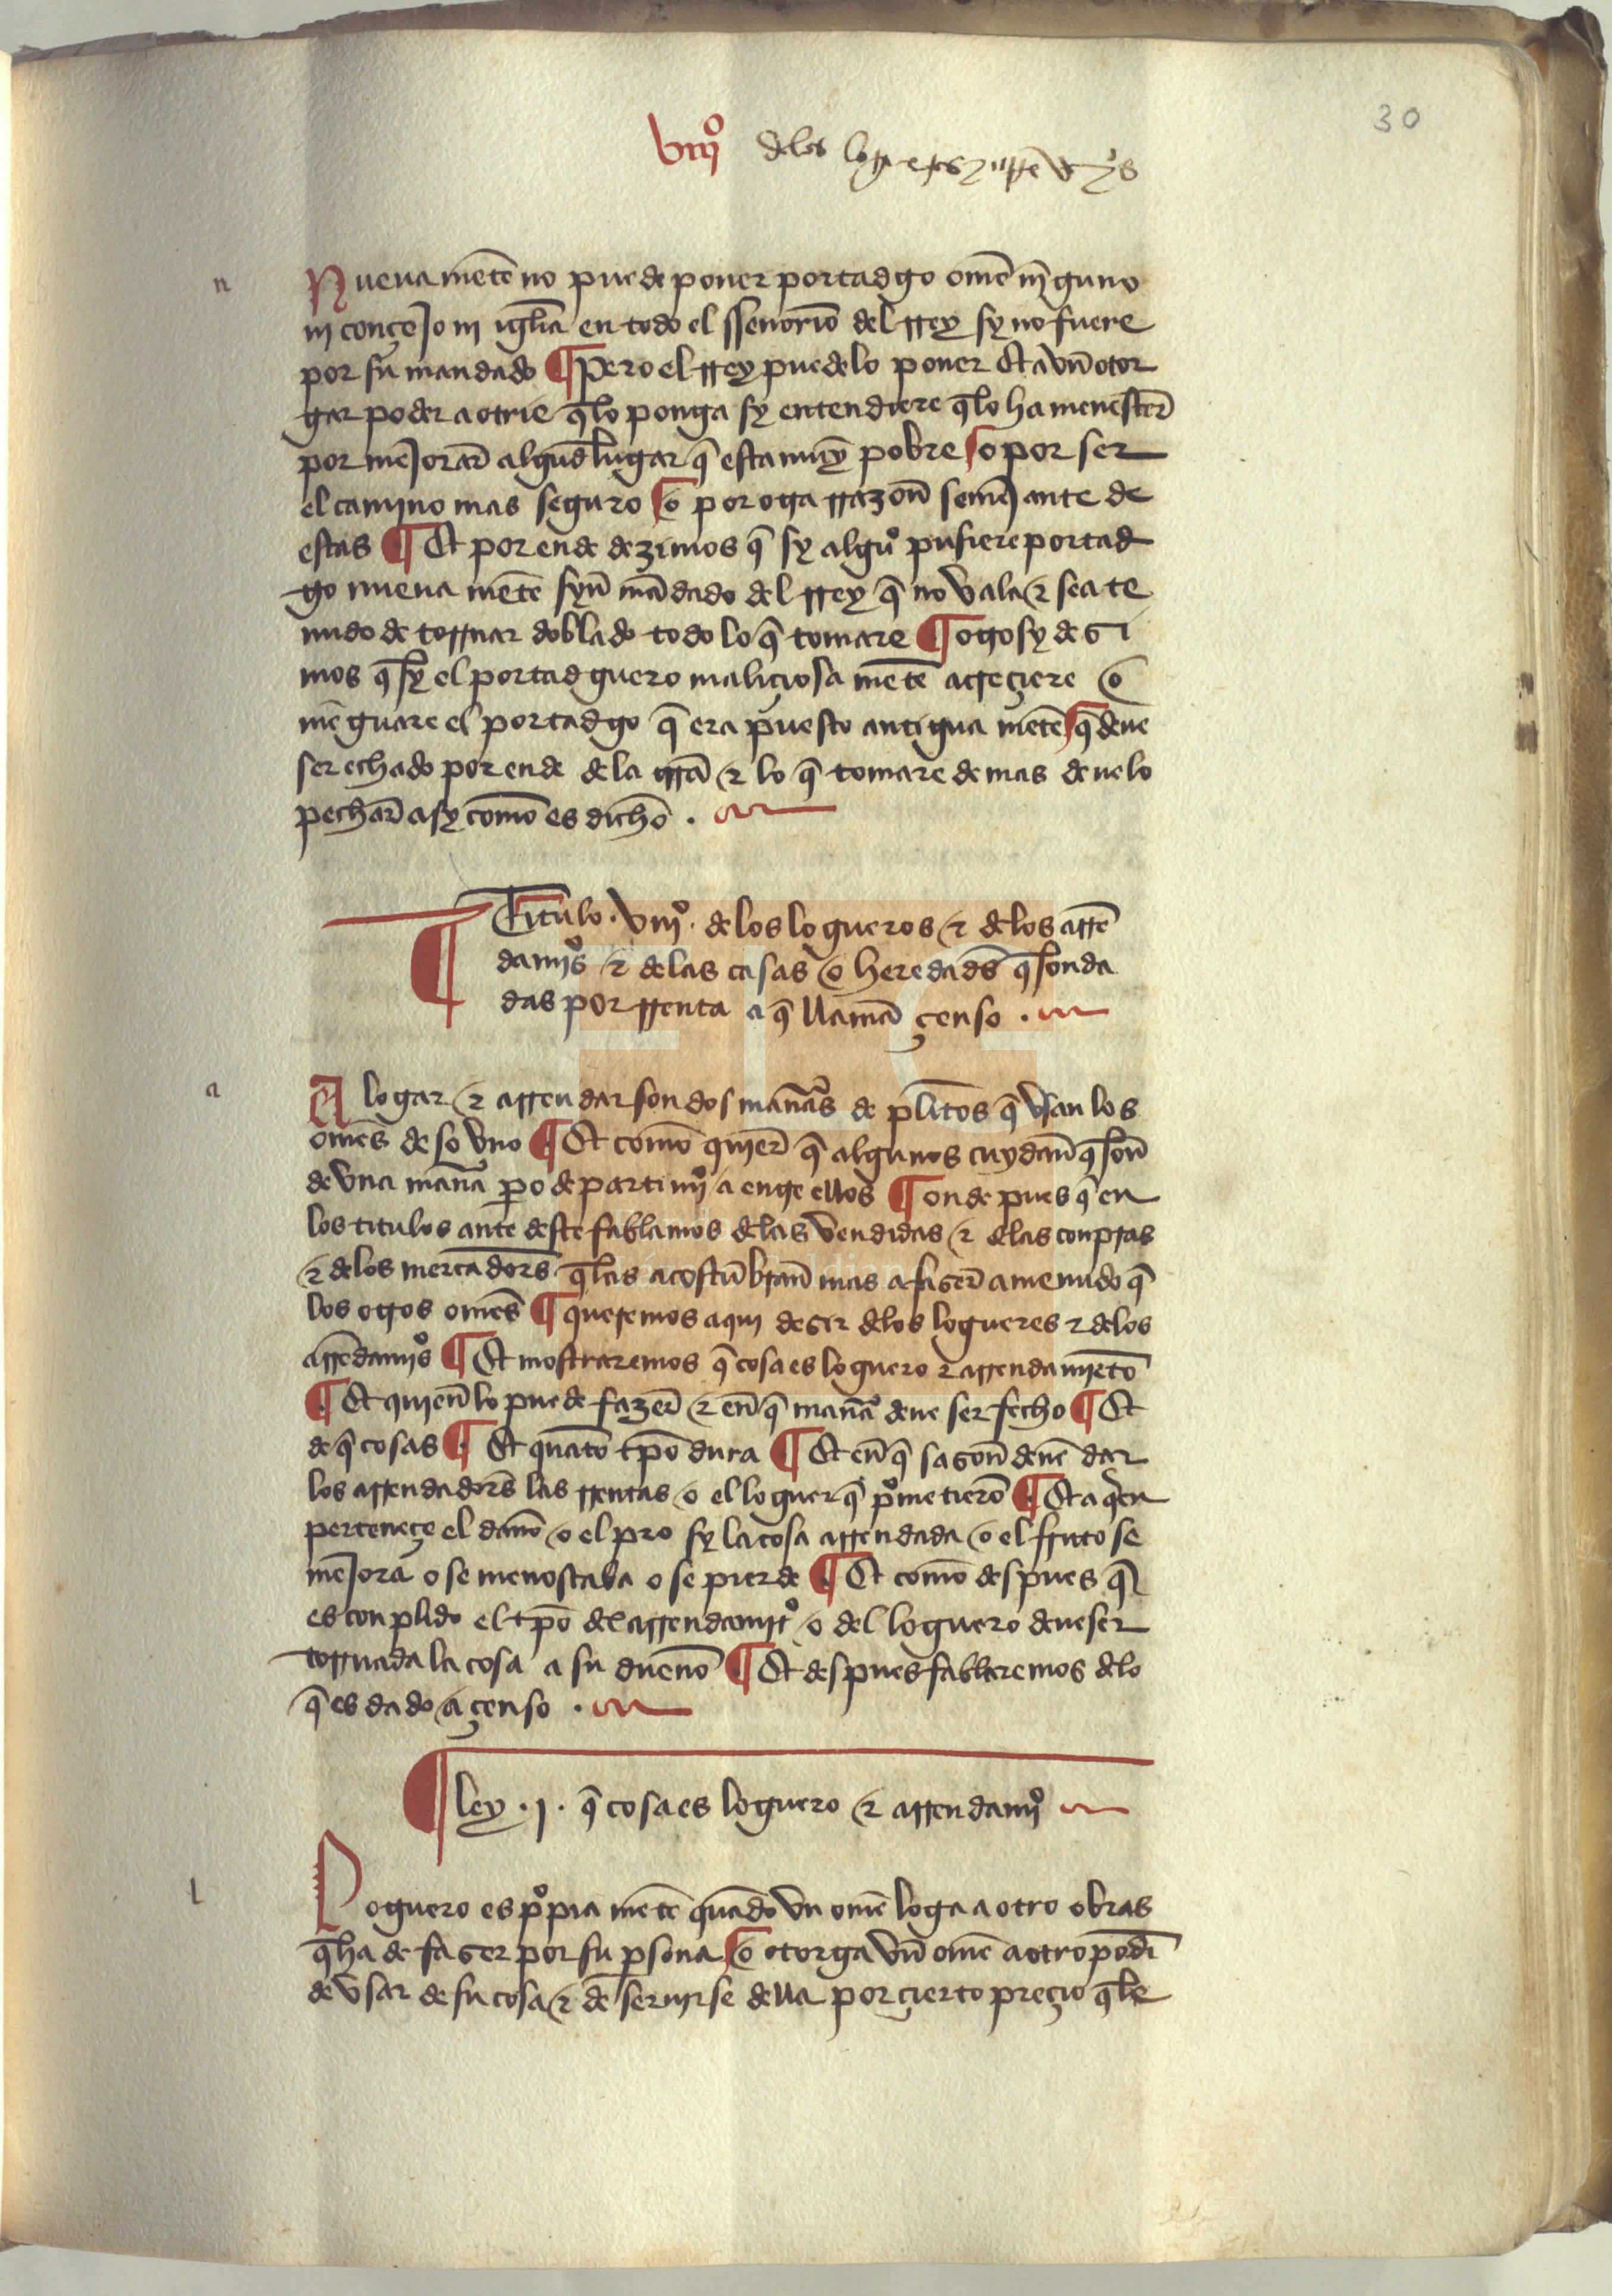 30
viijº delos logueros
n
Nueua mẽte no puede poner portadgo omẽ njnguno
nj conçejo nj igl̃ia en todo el ssenorio del rrey sy no fuere
por su mandado ¶ Pero el rrey puedelo poner Et avñ otor
gar poder a otrie q̃lo ponga sy entendiere q̃lo ha menester̃
por mejorar̃ algud lugar q̃ esta muy pobre o por ser
el camino mas seguro o por otra rrazoñ semejante de
estas ¶ Et por ende dezimos q̃ sy alguº pusiere portad
go nueua mẽte syñ mãdado del rrey q̃ no vala ⁊ sea te
nudo de torrnar doblado todo lo q̃ tomare ¶ otrosy desi
mos q̃ sy el portadguero maliçiosa mẽte acreçiere o
mẽguare el portadgo q̃ era puesto antigua mẽte q̃ deue
ser echado por ende de la trrã ⁊ lo q̃ tomare de mas deuelo
pechar̃ asy como es dicho .
¶ Titulo . viijº . delos logueros ⁊ delos arrẽ
damjºs ⁊ de las casas o heredads̃ q̃ son da
das por rrenta a q̃ llamã çenso .
a
A logar ⁊ arrendar son dos manãs de plitos q̃ vsan los
omẽs de so vno ¶ Et como quier̃ q̃ algunos cuydañ q̃ soñ
de vna manã pero departimjº a entre ellos ¶ onde pues q̃ en
los titulos ante deste fablamos delas vendidas ⁊ delas conpras
⁊ delos mercadors̃ q̃ las acostũbrañ mas a faser̃ a menudo q̃
los otros omẽs ¶ queremos aqui desir delos logueres ⁊ delos
arrẽdamjºs ¶ Et mostraremos q̃ cosa es loguero ⁊ arrendamjẽto
¶ Et quieñ lo puede fazer̃ ⁊ eñ q̃ manã deue ser fecho ¶ Et
de q̃ cosas ¶ Et quãto tp̃o dura ¶ Et eñ q̃ sasoñ deuẽ dar
los arrendadors̃ las rrentas o el loguer q̃ pºmetierõ ¶ Et a quien
perteneçe el dano o el pro sy la cosa arrendada o el fruto se
mẽjora o se menoscaba o se pierde ¶ Et como despues q̃
es conplido el tp̃o del arrendamjtº o del loguero deue ser
torrnada la cosa a su dueno ¶ Et despues fablaremos delo
q̃ es dado a çenso .
¶ ley . j . q̃ cosa es loguero ⁊ arrendamjº
l
Loguero es pºpia mẽte quãdo vn omẽ loga a otro obras
q̃ ha de faser por su psona o otorga vñ omẽ a otro poder̃
de vsar de su cosa ⁊ de seruirse della por çierto preçio q̃le